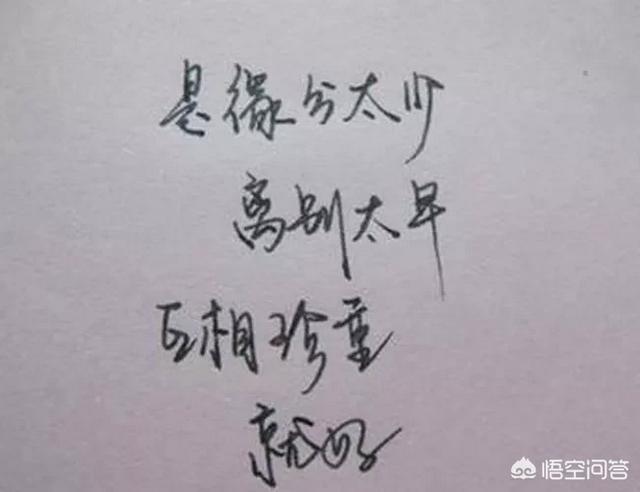 是缘分太少
离别太早
互相珍重
就好
悟空问答